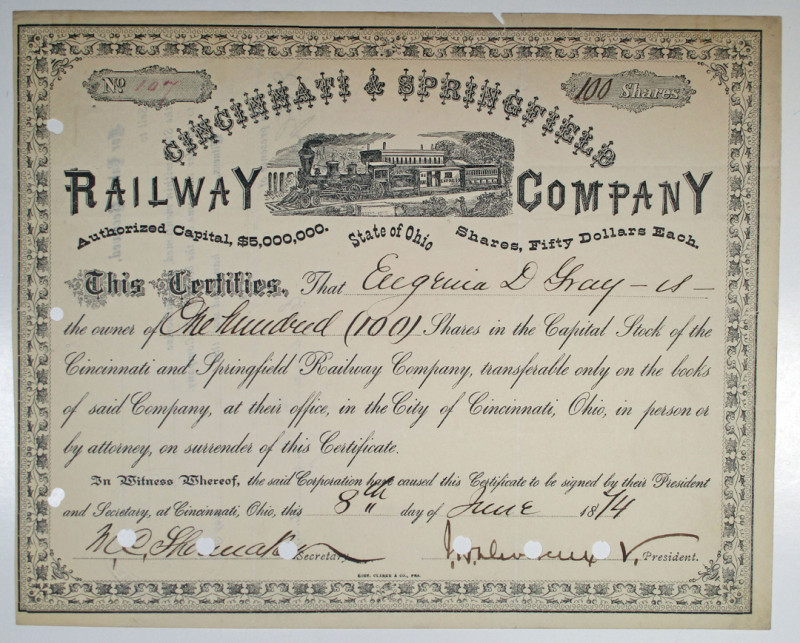 No 107
100 Shares
CINCINNATI & SPRINGFIELD
RAILWAY COMPANY
Authorized Capital, $5,000,000. State of Ohio Shares, Fifty Dollars Each.
This Certifies, That Eugenia D Gray - is -
the owner of One hundred (100) Shares in the Capital Stock of the
Cincinnati and Springfield Railway Company, transferable only on the books
of said Company, at their office, in the City of Cincinnati, Ohio, in person or
by attorney, on surrender of this Certificate.
In Witness Whereof, the said Corporation have caused this Certificate to be signed by their President
and Secretary, at Cincinnati, Ohio, this 8th day of June 1874
Shoemaker Secretary V. President.